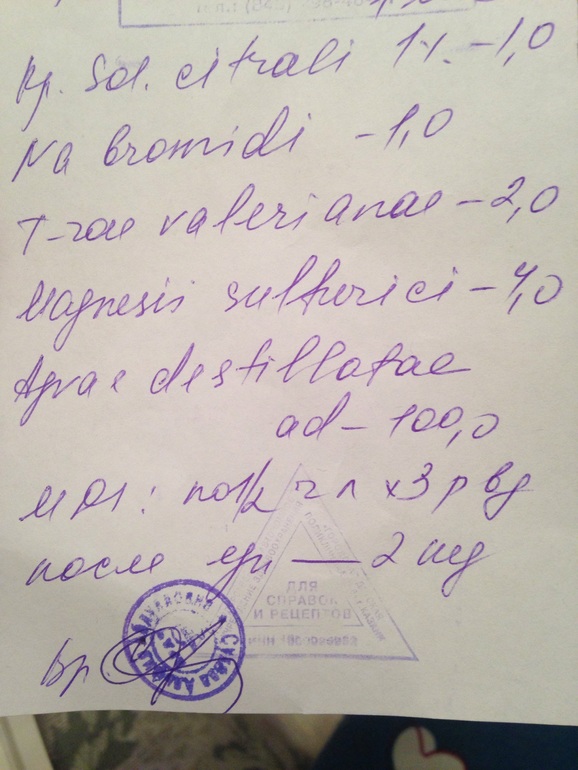 Rp. Sol. citrali 1% -1,0
Na bromidi -1,0
T-rae valerianae -2,0
Magnesii sulfurici -4,0
Aquae destillatae
ad - 100,0
MDS: по 1/2 ч л х3 р вд
после еды — 2 нед
Вр
ДЛЯ
СПРАВОК
И РЕЦЕПТОВ
ИНН